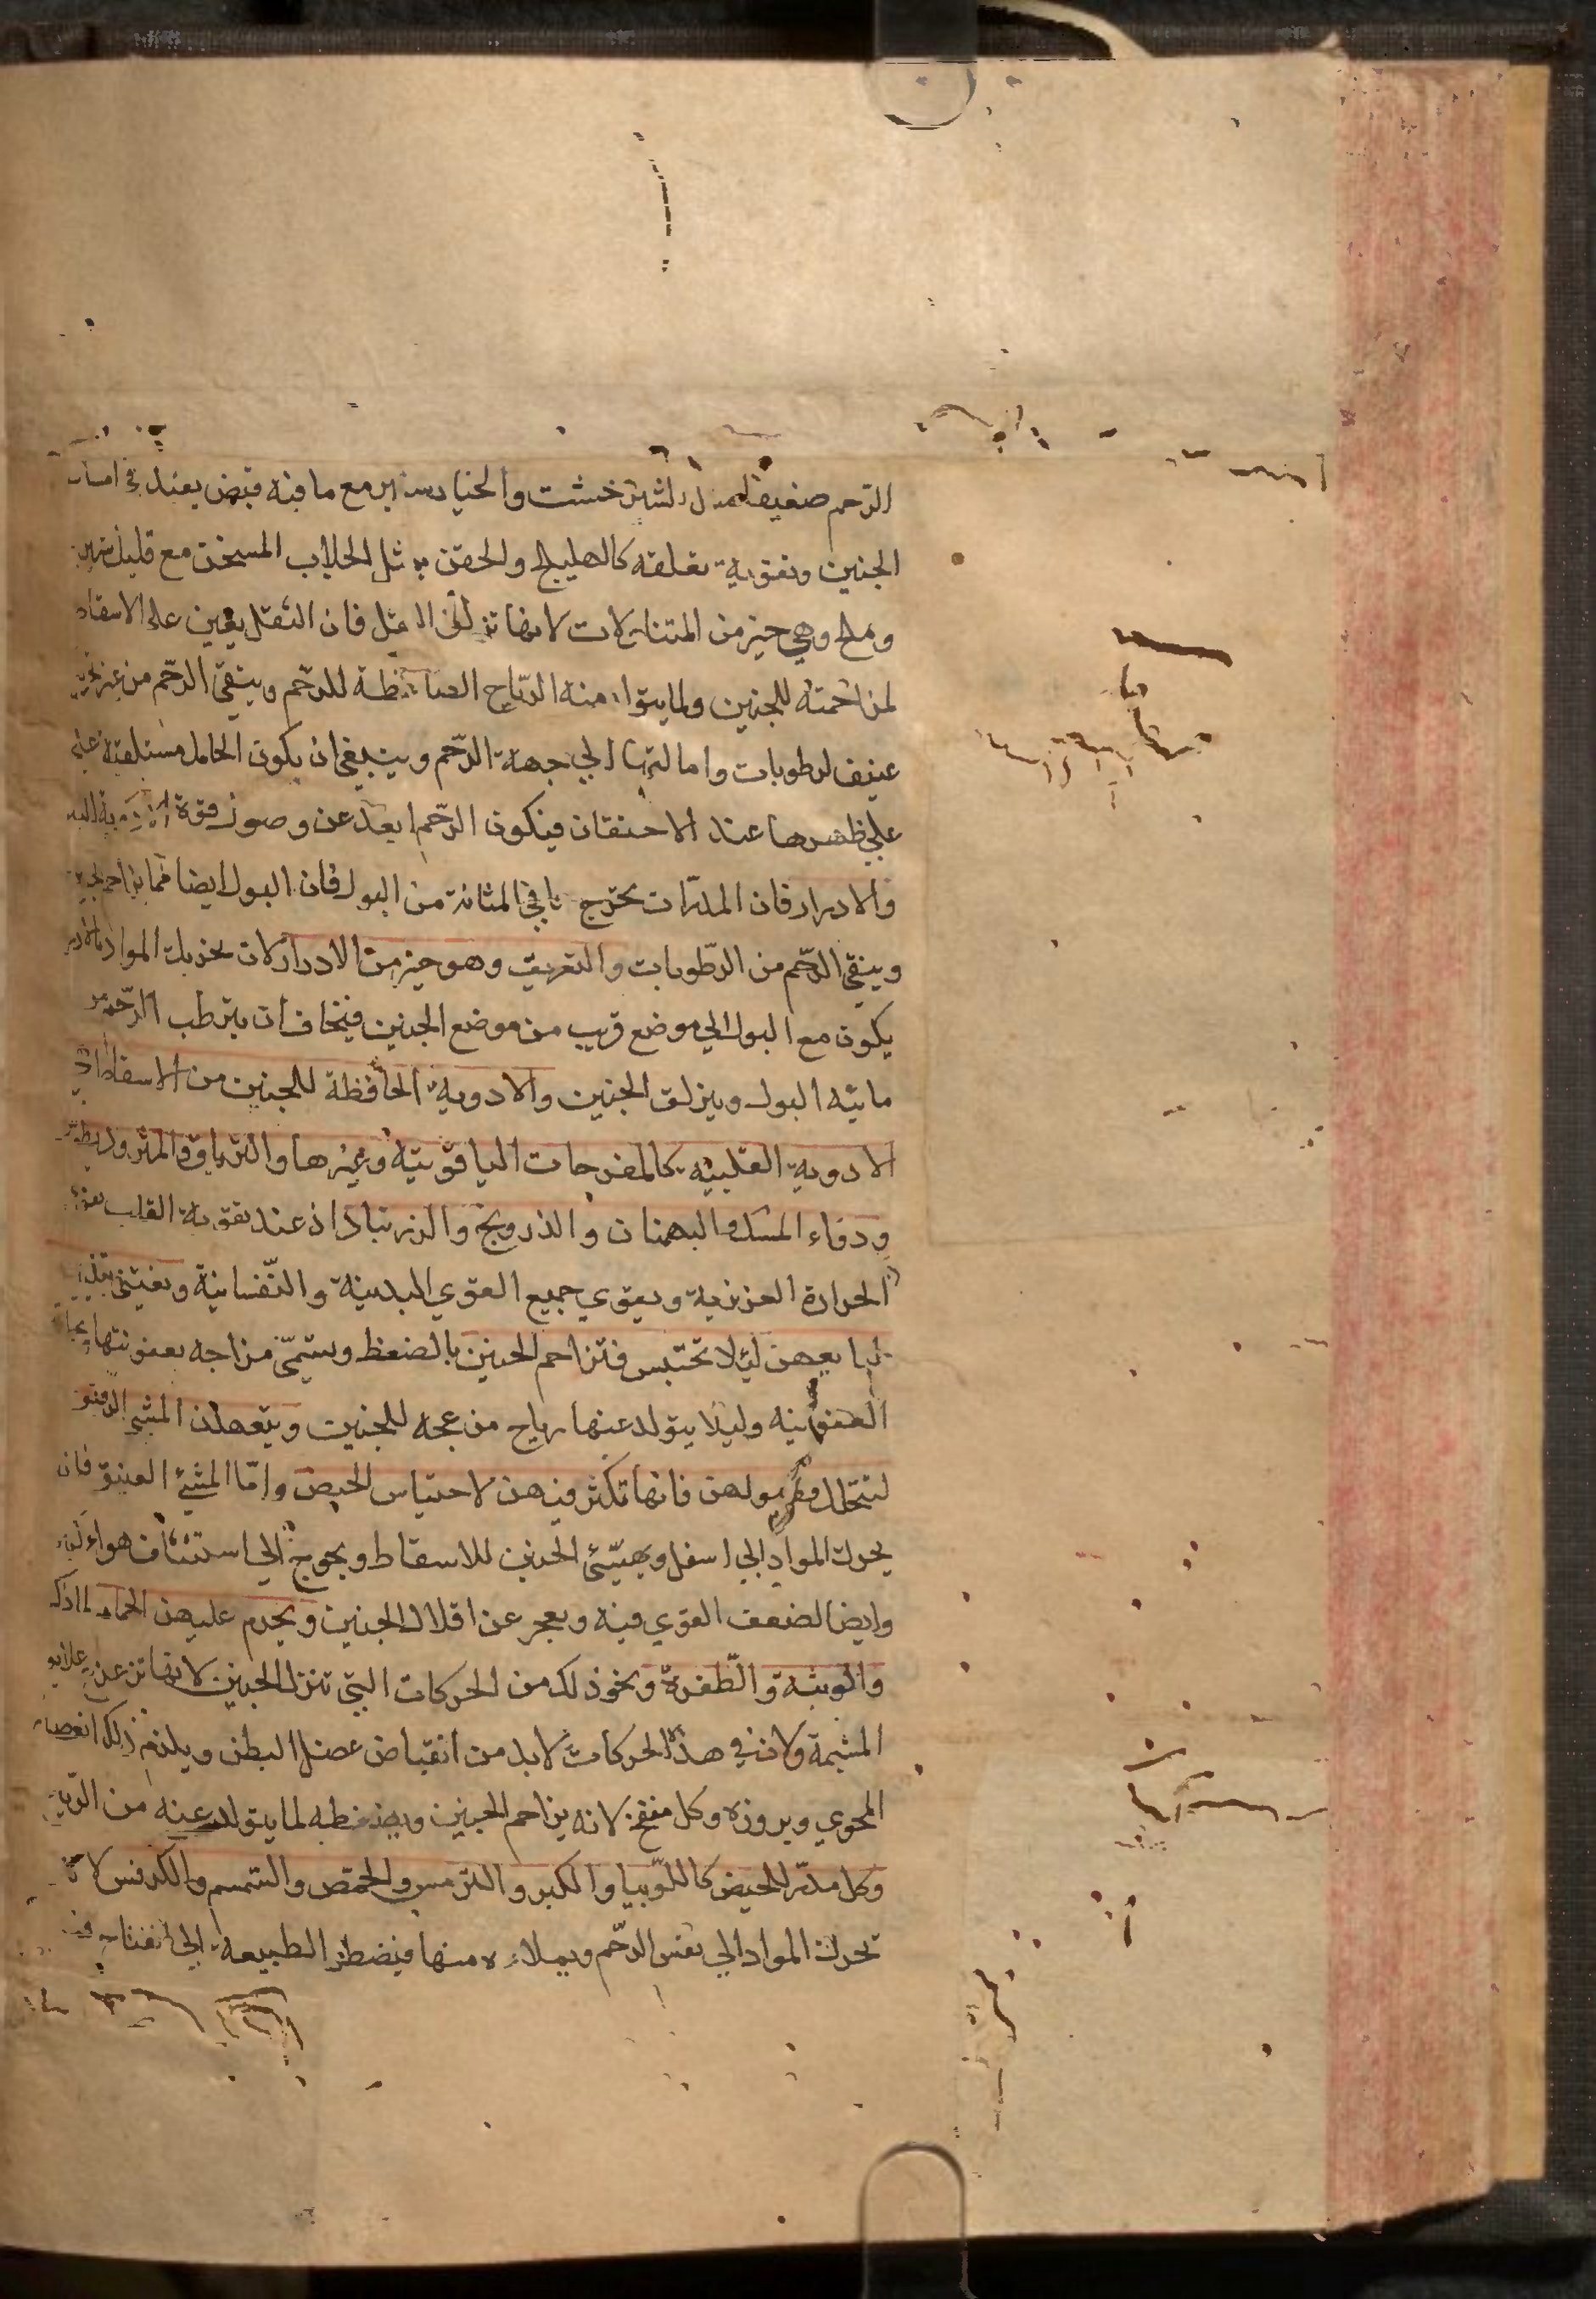 الرّحم ضعيفا مثل الشيرخشت والخيارشنبر مع ما فيه قبض يفيد في امساك
الجنين وتقوية تعلقه كالهليلج والحقن مثل الجلاب المسخن مع قليل
وملح وهي خير من المتناولات لانها تزلق الثفل فان الثقل يعين على الاسقاط
لمزاحمته للجنين ولما يتولد منه الرّياح الضاغطة للرّحم وينقي الرّحم من غير
عنيف لرطوبات وامالتها الي جهة الرّحم وينبغي ان يكون الحامل مستلقية
علي ظهرها عند الاحتقان فيكون الرّحم ابعد عن وصول قوة الادوية اليه
والادرار فان المدرّات تخرج ما في المثانة من البول فان البول ايضا مما يزاحم الجنين
وينقي الرّحم من الرّطوبات والتعريق وهو خير من الادرار لان تحريك المواد بالادرار
يكون مع البول الي موضع قريب من موضع الجنين فيخاف ان يترطب الرّحم من
مائيه البول وينزلق الجنين والادوية الحافظة للجنين من الاسقاط
الادوية القلبيه كالمفرحات الياقوتيه وغيرها والترياق والمثروديطوس
ودواء المسك والبهمنان والدرونج والزرنباد اذ عند تقوية القلب
الحرارة الغريزية ويقوي جميع القوي البدنية والنّفسانية ويعتني بتليين
طبايعهن ليلا تحتبس فتزاحم الجنين بالضغط ويستمّي مزاجه بعفونتها
العفونيه وليلا يتولد عنها رياح مزعجه للجنين ويتعهدن المشي الرفيق
لتتحلل فضولهن فانها تكثر فيهن لاحتباس الحيض وامّا المشي العنيف فانه
يحرك المواد الي اسفل ويهيّئ الجنين للاسقاط ويحوج الي استنشاق هواء
وايضا لضعف القوي فيه ويعجز عن اقلال الجنين ويحرم عليهن الحمام لما ذكر
والوثبه والطّفرة ونحو ذلك من الحركات التي تنزل الجنين لانها تزعزع علايق
المشيمة ولان في هذه الحركات لابد من انقباض عضل البطن ويلزم ذلك انعصار
المحوي وبروزه وكل منفخ لانه يزاحم الجنين ويضغطه لما يتولد عنه من الرّيح
وكل مدرّ للحيض كاللّوبيا والكبر والترمس والحمّص والسّمسم والكرفس لانه
تحرك المواد الي نفس الرّحم ويملاءه منها فيضطرّ الطبيعة الي انفتاح